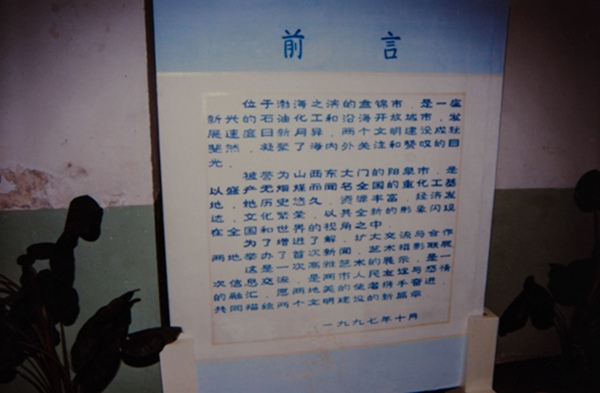 前言
位于渤海之滨的盘锦市，是一座
新兴的石油化工和沿海开放城市，发
展速度日新月异，两个文明建设成就
斐然，凝聚了海内外关注和赞叹的目
光。
被誉为山西东大门的阳泉市，是
以盛产无烟煤而闻名全国的重化工基
地，她历史悠久，资源丰富，经济发
达，文化繁荣，以其全新的形象闪现
在全国和世界的视角之中。
为了增进了解，扩大交流与合作
两地举办了首次新闻、艺术摄影联展
这是一次高雅艺术的展示，是一
次信息交流，是两市人民友谊与感情
的融汇，愿两地美的使者携手奋进，
共同描绘两个文明建设的新篇章。
一九九七年十月